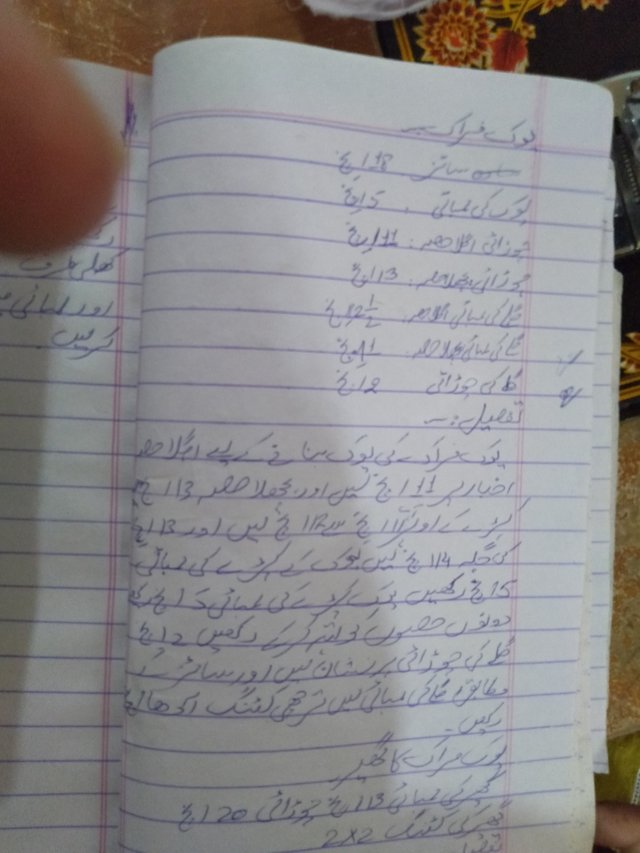 یوک فراک :-
سائز 18 انچ
یوک کی لمبائی . 15 انچ
چوڑائی اگلا حصہ . 11 انچ
چوڑائی پچھلا حصہ . 13 انچ
گلے کی لمبائی اگلا حصہ . 2 1/2 انچ
گلے کی لمبائی پچھلا حصہ . 1 انچ
گلے کی چوڑائی 2 انچ
تفصیل :-
یوک فراک کی یوک بنانے کے لیے اگلا حصہ
اخبار پر 11 انچ لیں اور پچھلا حصہ 13 انچ
کپڑے کے اوپر 11 انچ سے 12 انچ لیں اور 13 انچ
کی جگہ 14 انچ لیں یوک کے کپڑے کی لمبائی
15 انچ رکھیں یوک کپڑے کی لمبائی 15 انچ
دونوں حصوں کو کرکے رکھیں 2 انچ
گلے کی چوڑائی پر نشان لیں اور سائز کے
مطابق گلے کی لمبائی لیں ترچھی کٹنگ
رکھیں -
یوک فراک کا گھیر
گھیر کی لمبائی 13 انچ چوڑائی 20 انچ
گھیر کی کٹنگ 2x2
کھلی طرف
اور لمبائی
کریں.